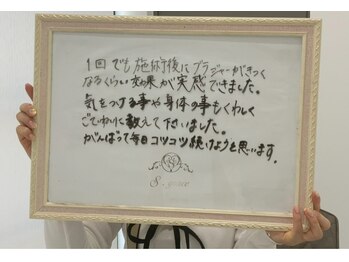 1回でも施術後にブラジャーがきつく
なるくらい効果が実感できました。
気をつける事や身体の事もくわしく
ごていねいに教えて下さいました。
がんばって毎日コツコツ続けようと思います。
S. grace